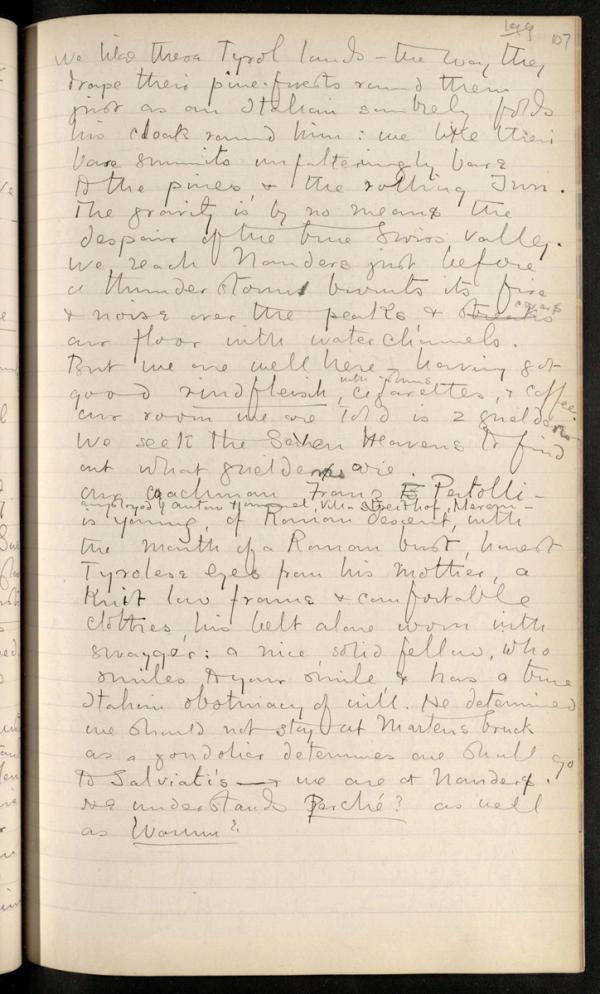 199 107
we like these Tyrol lands – the way they
drape their pine-forests round them
just as an Italian sombrely folds
his cloak round him : we like their
bare summits unfalteringly bare
to the pines, & the rolling Inn.
The gravity is by no means the
despair of the true Swiss valley.
We reach Nanders just before
a thunder storm bursts its fire
& noise over the peaks & streaks covers
our floor with water channels.
But we are well here – having got
good rindfleish, with prunes cigarettes, & coffee.
Our room we are told is 2 guelders
We seek the Seven Heavens to find
out what guelders are.
Our coachman Franz Pertolli –
employed by Anton Villa Mera
is young, of Roman descent, with
the mouth of a Roman bust, honest
Tyrolese eyes from his mother, a
knit low frame & comfortable
clothes, his belt alone worn with
swagger : a nice, solid fellow, who
smiles to your smile & has a true
Italian obstinacy of will. He determined
we should not stay at Martensbruck
as a gondolier determines one shall go
to Salviati's – & we are at Nanders.
He understands Perché? as well
as Warum?